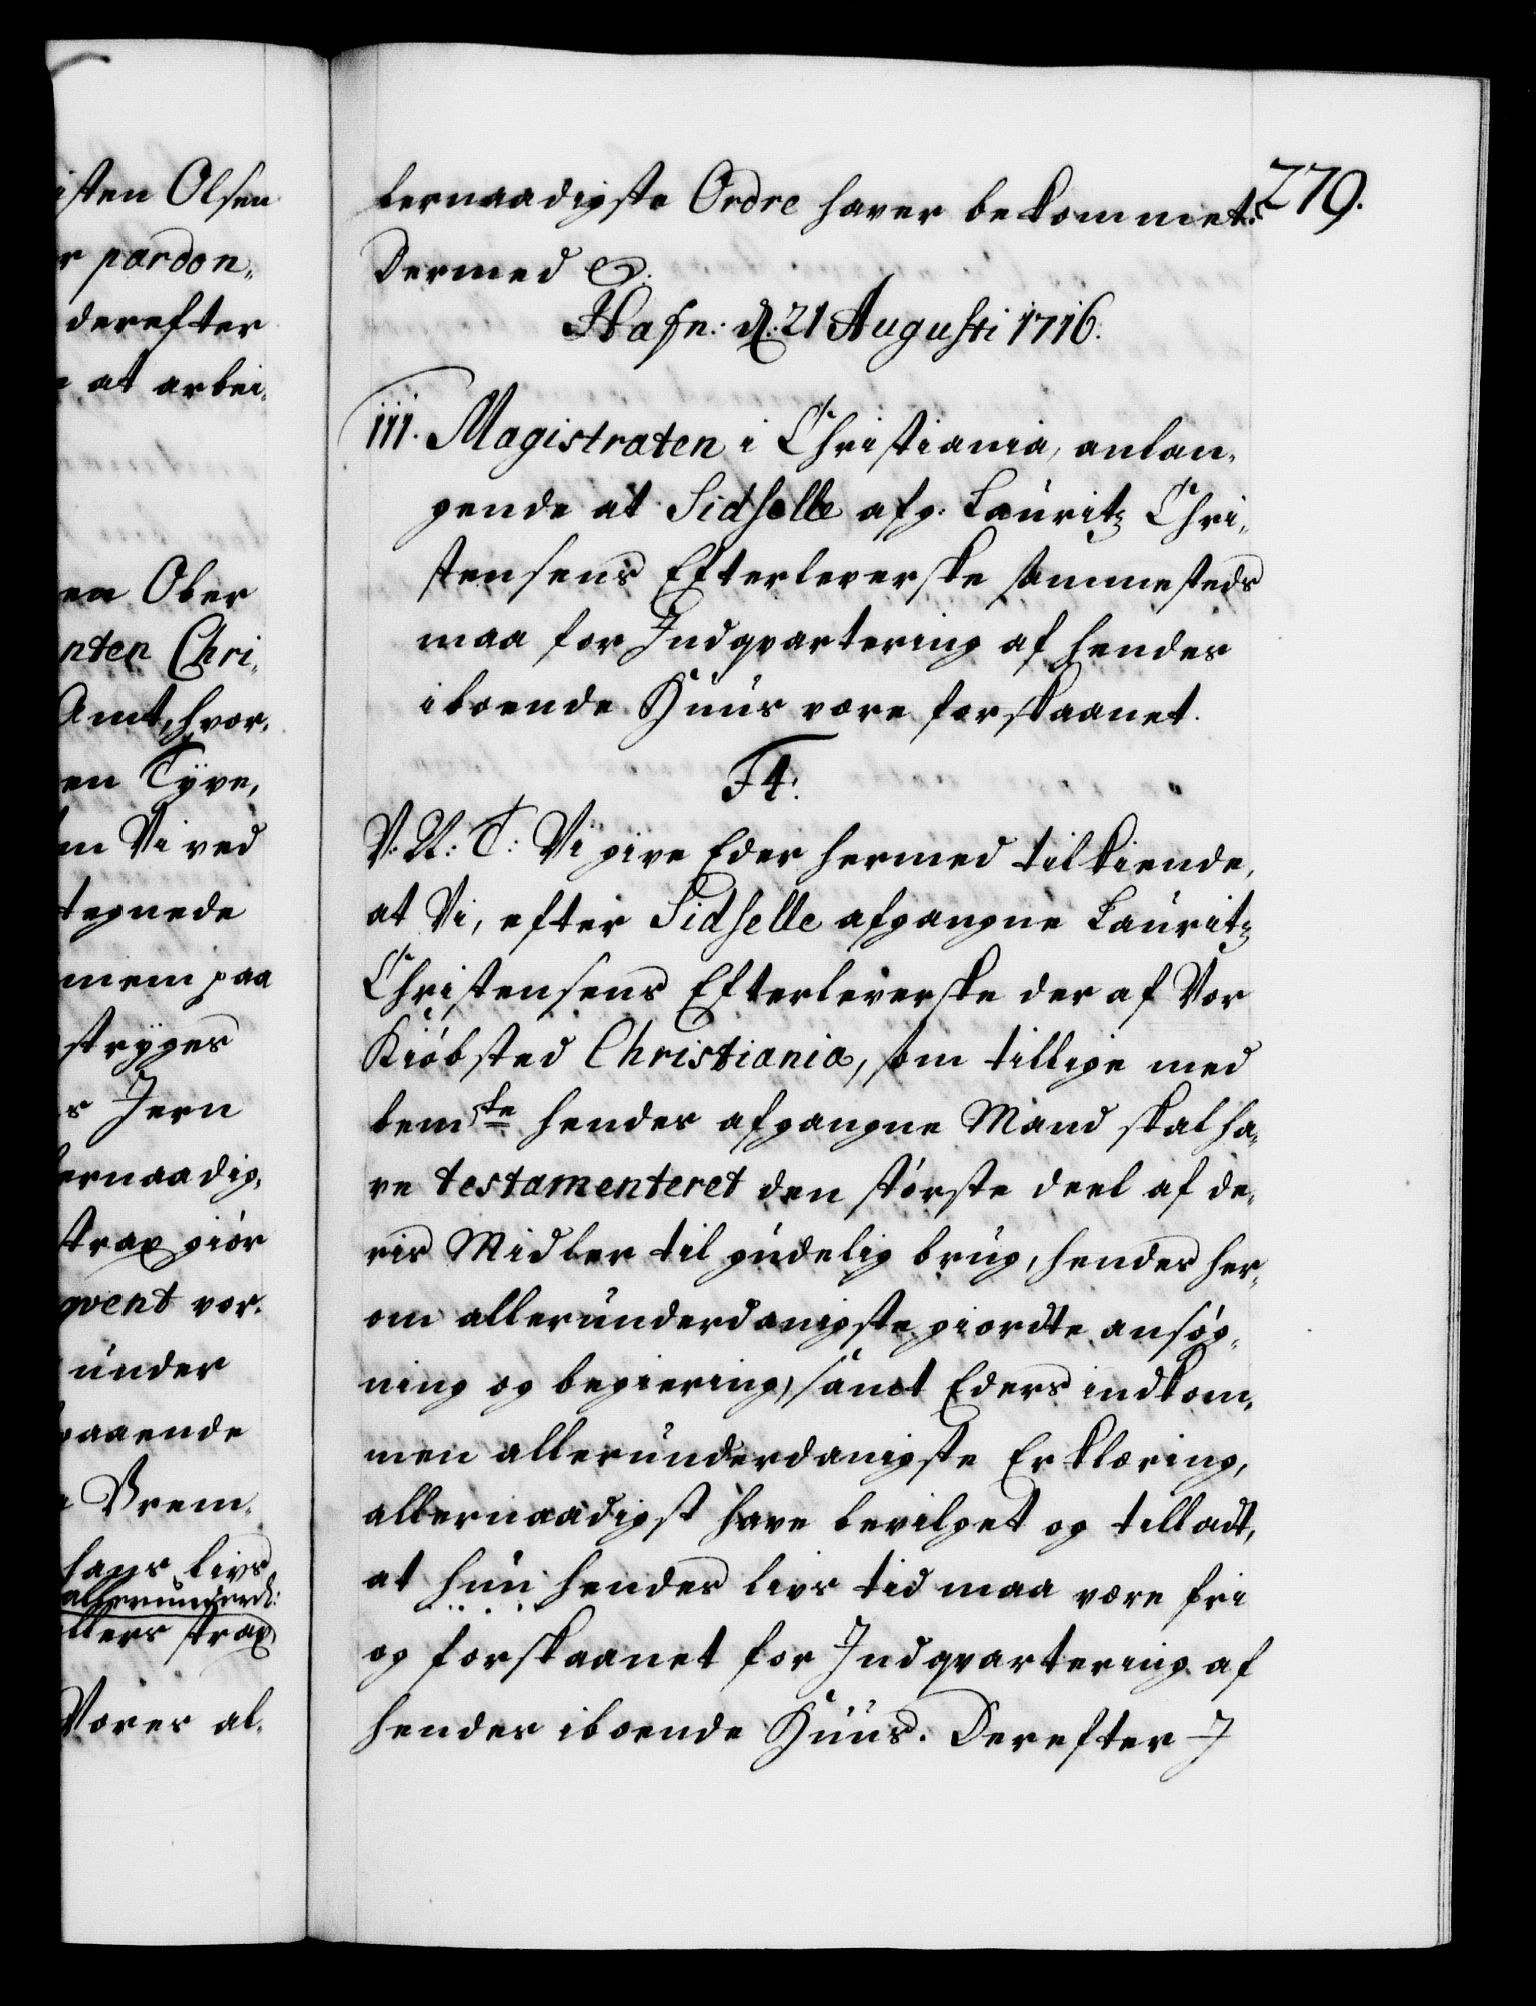 isten Olsen
r pardon,
derefter
at arbei,
en Ober
nten Chri,
Amt, hvor,
en Tÿve,
m Vi ved
tegnede
mem paa
strÿges
s Jern
lernaadig,
strax giör
qvent vor,
under
gaaende
Brem,
hans livs
allerunderd:
llers strax
Vores al,
279.
lernaadigste Ordre haver bekommet.
Dermed &.
Hafn: d: 21 Augusti 1716.
111. Magistraten i Christiania, anlan,
gende at Sidselle afg: Lauritz Chri,
stensens Efterleverske sammesteds
maa for Indqvartering af hendes
iboende Huus være forskaanet.
F4.
V: U: T: Vi give Eder hermed tilkiende,
at Vi, efter Sidselle afgangne Lauritz
Christensens Efterleverske der af Vor
Kiöbsted Christiania, som tillige med
bemte hendes afgangne Mand skal ha,
ve testamenteret den störste deel af de,
ris Midler til gudelig brug, hendes her,
om allerunderdanigste giordte ansög,
ning og begiering, samt Eders indkom,
men allerunderdanigste Erklæring,
allernaadigst have bevilget og tilladt,
at hun hendes livs tid maa være fri
og forskaanet for Indqvartering af
hendes iboende Huus. Derefter I